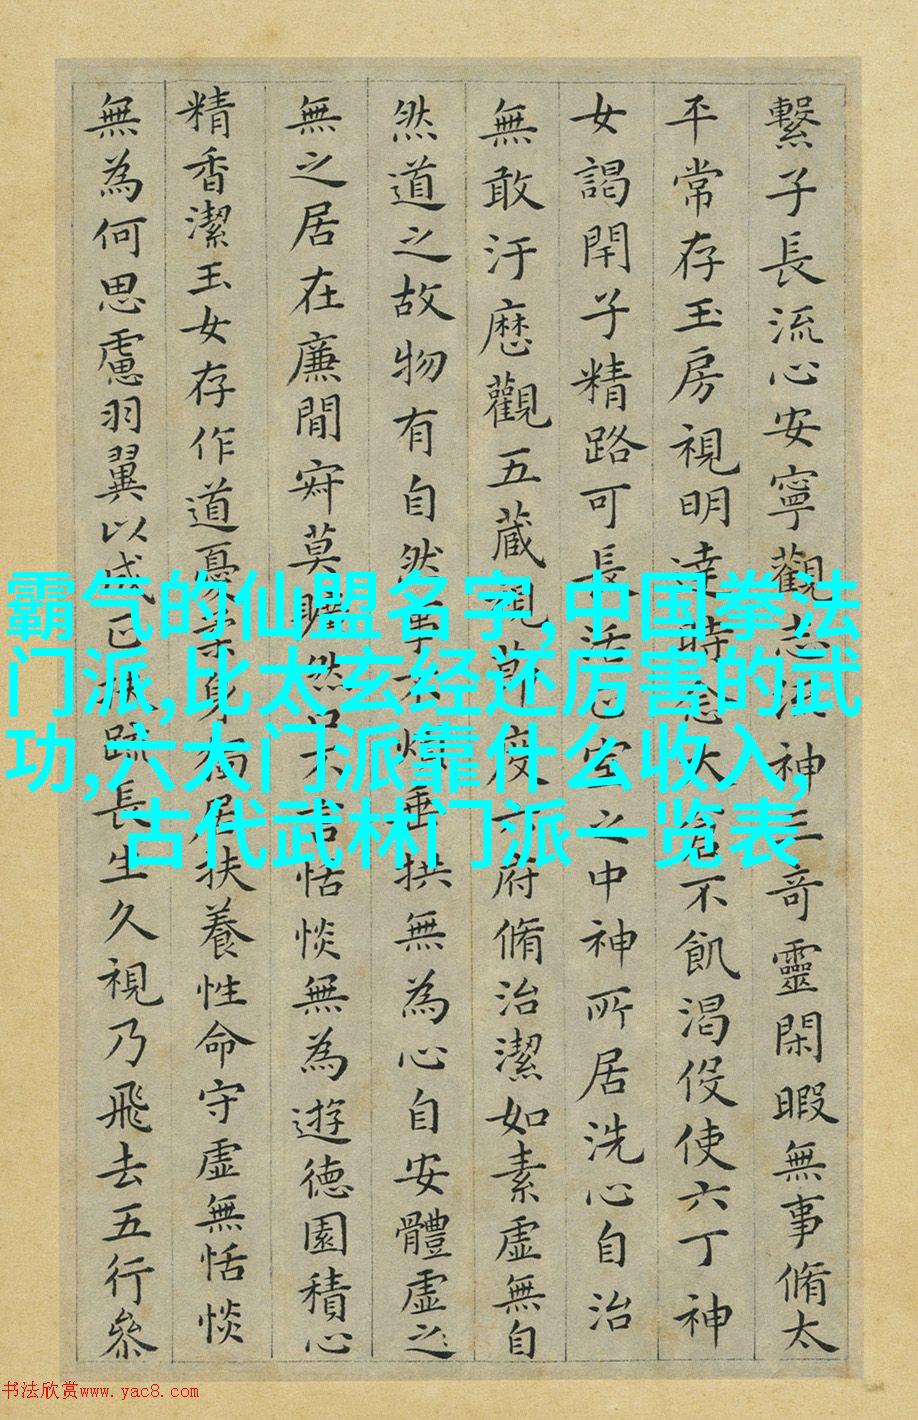 繫子長流心安寧觀志神三奇靈閑暇無事脩太
平常存玉房視明達時念大倉不飢渴伇使六丁神
女謁閇子精路可長活正室之中神所居洗心自治
無敢汙歷觀五藏視節度六府脩治潔如素虛無自
然道之故物有自然事不煩垂拱無為心自安體虛之
無之居在廉閒寂莫曠然口不言恬惔無為遊德園積心
精香潔玉女存作道憂柔身獨居扶養性命守虛無恬惔
無為何思慮羽翼以成正扶疏長生久視乃飛去五行參
霸气的仙盟名字,中国拳法
门派,比太玄经还厉害的武
功,六大门派靠什么收入,
古代武林门派一览表
书法欣赏www.yac8.com